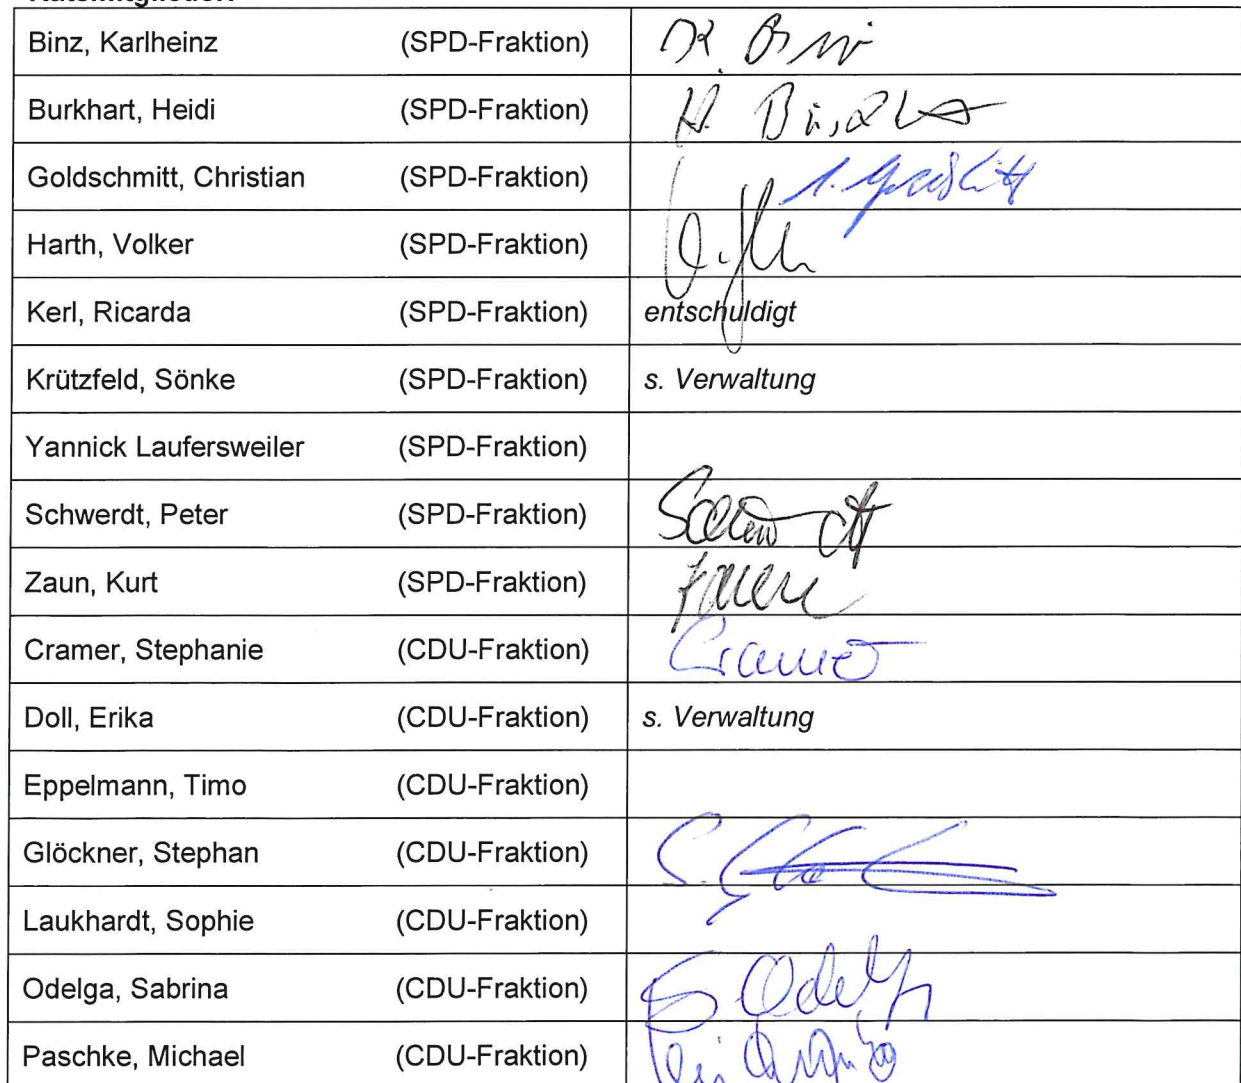 Ratsmitglieder:
Binz, Karlheinz (SPD-Fraktion) K. Binz
Burkhart, Heidi (SPD-Fraktion) H.
Goldschmitt, Christian (SPD-Fraktion)
Harth, Volker (SPD-Fraktion)
Kerl, Ricarda (SPD-Fraktion) entschuldigt
Krützfeld, Sönke (SPD-Fraktion) s. Verwaltung
Yannick Laufersweiler (SPD-Fraktion)
Schwerdt, Peter (SPD-Fraktion)
Zaun, Kurt (SPD-Fraktion)
Cramer, Stephanie (CDU-Fraktion) Cramer
Doll, Erika (CDU-Fraktion) s. Verwaltung
Eppelmann, Timo (CDU-Fraktion)
Glöckner, Stephan (CDU-Fraktion)
Laukhardt, Sophie (CDU-Fraktion)
Odelga, Sabrina (CDU-Fraktion) S. Odelga
Paschke, Michael (CDU-Fraktion)